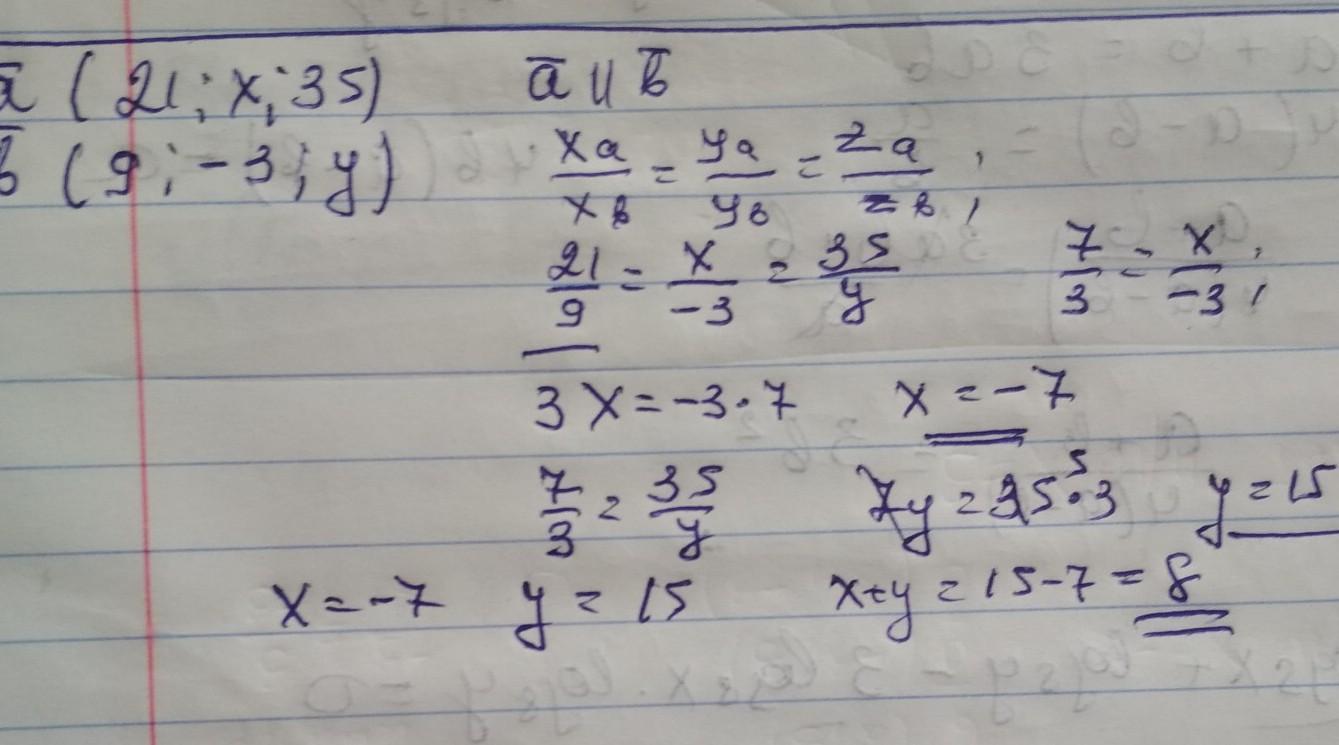 a̅ (21; x; 35) a̅ ıı b̅
b̅ (9; -3; y) xa/xв = yа/yв = zа/zв ;
21/9 = x/-3 = 35/y 7/3 = x/-3 ;
3x = -3·7 x = -7
7/3 = 35/y 7y = 35·3 5 y = 15
x = -7 y = 15 x+y = 15-7 = 8